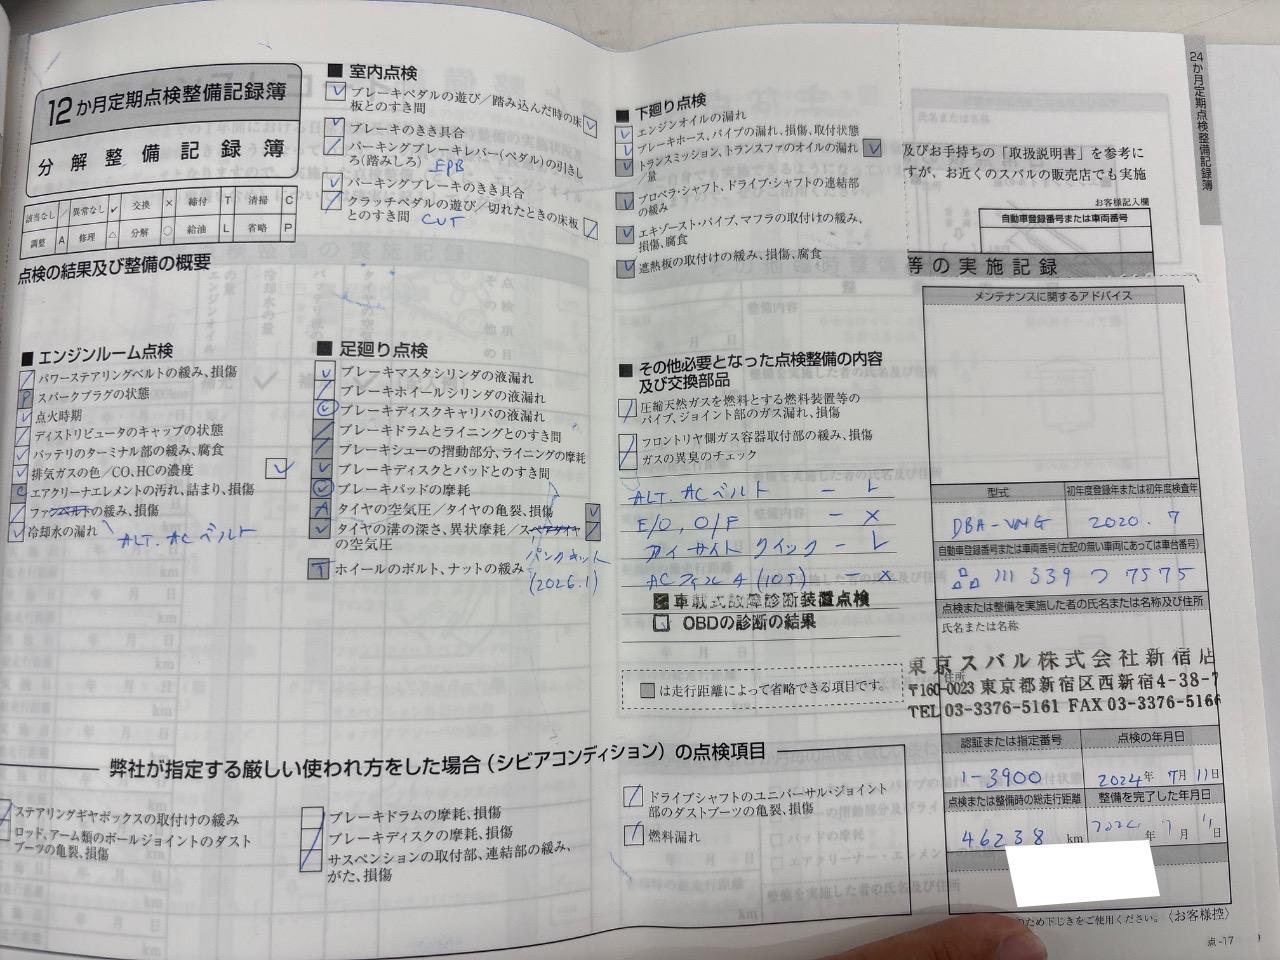 12か月定期点検整備記録簿
分解整備記録簿
該当なし / 異常なし ✓ 交換 × 締付 T 清掃 C
調整 A 修理 △ 分解 ○ 給油 L 省略 P
点検の結果及び整備の概要
■ エンジンルーム点検
パワーステアリングベルトの緩み、損傷
スパークプラグの状態
点火時期
ディストリビュータのキャップの状態
バッテリのターミナル部の緩み、腐食
排気ガスの色/CO、HCの濃度
エアクリーナエレメントの汚れ、詰まり、損傷
ファンベルトの緩み、損傷
冷却水の漏れ
ALT. ACベルト
■ 室内点検
ブレーキペダルの遊び/踏み込んだ時の床
板とのすき間
ブレーキのきき具合
パーキングブレーキレバー(ペダル)の引きし
ろ(踏みしろ) EPB
パーキングブレーキのきき具合
クラッチペダルの遊び/切れたときの床板
とのすき間 CVT
■ 足廻り点検
ブレーキマスタシリンダの液漏れ
ブレーキホイールシリンダの液漏れ
ブレーキディスクキャリパの液漏れ
ブレーキドラムとライニングとのすき間
ブレーキシューの摺動部分、ライニングの摩耗
ブレーキディスクとパッドとのすき間
ブレーキパッドの摩耗
タイヤの空気圧/タイヤの亀裂、損傷
タイヤの溝の深さ、異状摩耗/スペアタイヤ
の空気圧
パンクキット
(2026.1)
ホイールのボルト、ナットの緩み
■ 下廻り点検
エンジンオイルの漏れ
ブレーキホース、パイプの漏れ、損傷、取付状態
トランスミッション、トランスファのオイルの漏れ
/量
プロペラ・シャフト、ドライブ・シャフトの連結部
の緩み
エキゾースト・パイプ、マフラの取付けの緩み、
損傷、腐食
遮熱板の取付けの緩み、損傷、腐食
■ その他必要となった点検整備の内容
及び交換部品
圧縮天然ガスを燃料とする燃料装置等の
パイプ、ジョイント部のガス漏れ、損傷
フロントリヤ側ガス容器取付部の緩み、損傷
ガスの異臭のチェック
ALT. ACベルト - L
E/O, O/F - ×
アイサイト クイック - L
- ×
車載式故障診断装置点検
OBDの診断の結果
は走行距離によって省略できる項目です。
弊社が指定する厳しい使われ方をした場合(シビアコンディション)の点検項目
ステアリングギヤボックスの取付けの緩み
ロッド、アーム類のボールジョイントのダスト
ブーツの亀裂、損傷
ブレーキドラムの摩耗、損傷
ブレーキディスクの摩耗、損傷
サスペンションの取付部、連結部の緩み、
がた、損傷
ドライブシャフトのユニバーサル・ジョイント
部のダストブーツの亀裂、損傷
燃料漏れ
24か月定期点検整備記録簿
及びお手持ちの「取扱説明書」を参考に
すが、お近くのスバルの販売店でも実施
お客様記入欄
自動車登録番号または車両番号
等の実施記録
メンテナンスに関するアドバイス
型式
初年度登録年または初年度検査年
DBA-VMG
2020. 7
自動車登録番号または車両番号(左記の無い車両にあっては車台番号)
品川 339 つ 7575
点検または整備を実施した者の氏名または名称及び住所
氏名または名称
東京スバル株式会社新宿店
住所
〒160-0023 東京都新宿区西新宿4-38-7
TEL 03-3376-5161 FAX 03-3376-5166
認証または指定番号
点検の年月日
1-3900
2024年 7月 11日
点検または整備時の総走行距離
整備を完了した年月日
46238 km
2024年 7月 11日
のため下じきをご使用ください。〈お客様控〉
点-17